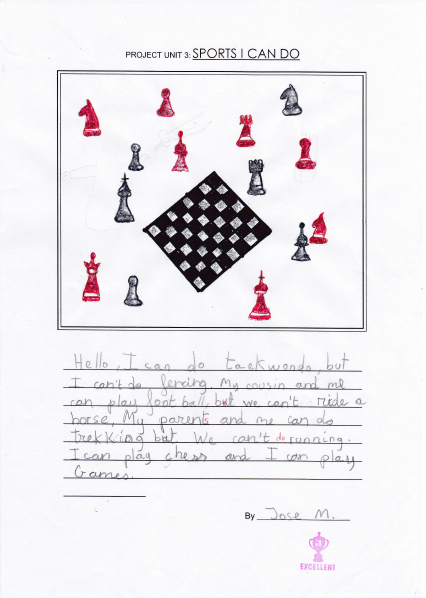 PROJECT UNIT 3: SPORTS I CAN DO
Hello, I can do taekwondo, but
I can't do fencing. My cousin and me
can play foot ball, but we can't ride a
horse. My parents and me can do
trekking but We can't do running.
I can play chess and I can play
Games.
By Jose M.
EXCELLENT